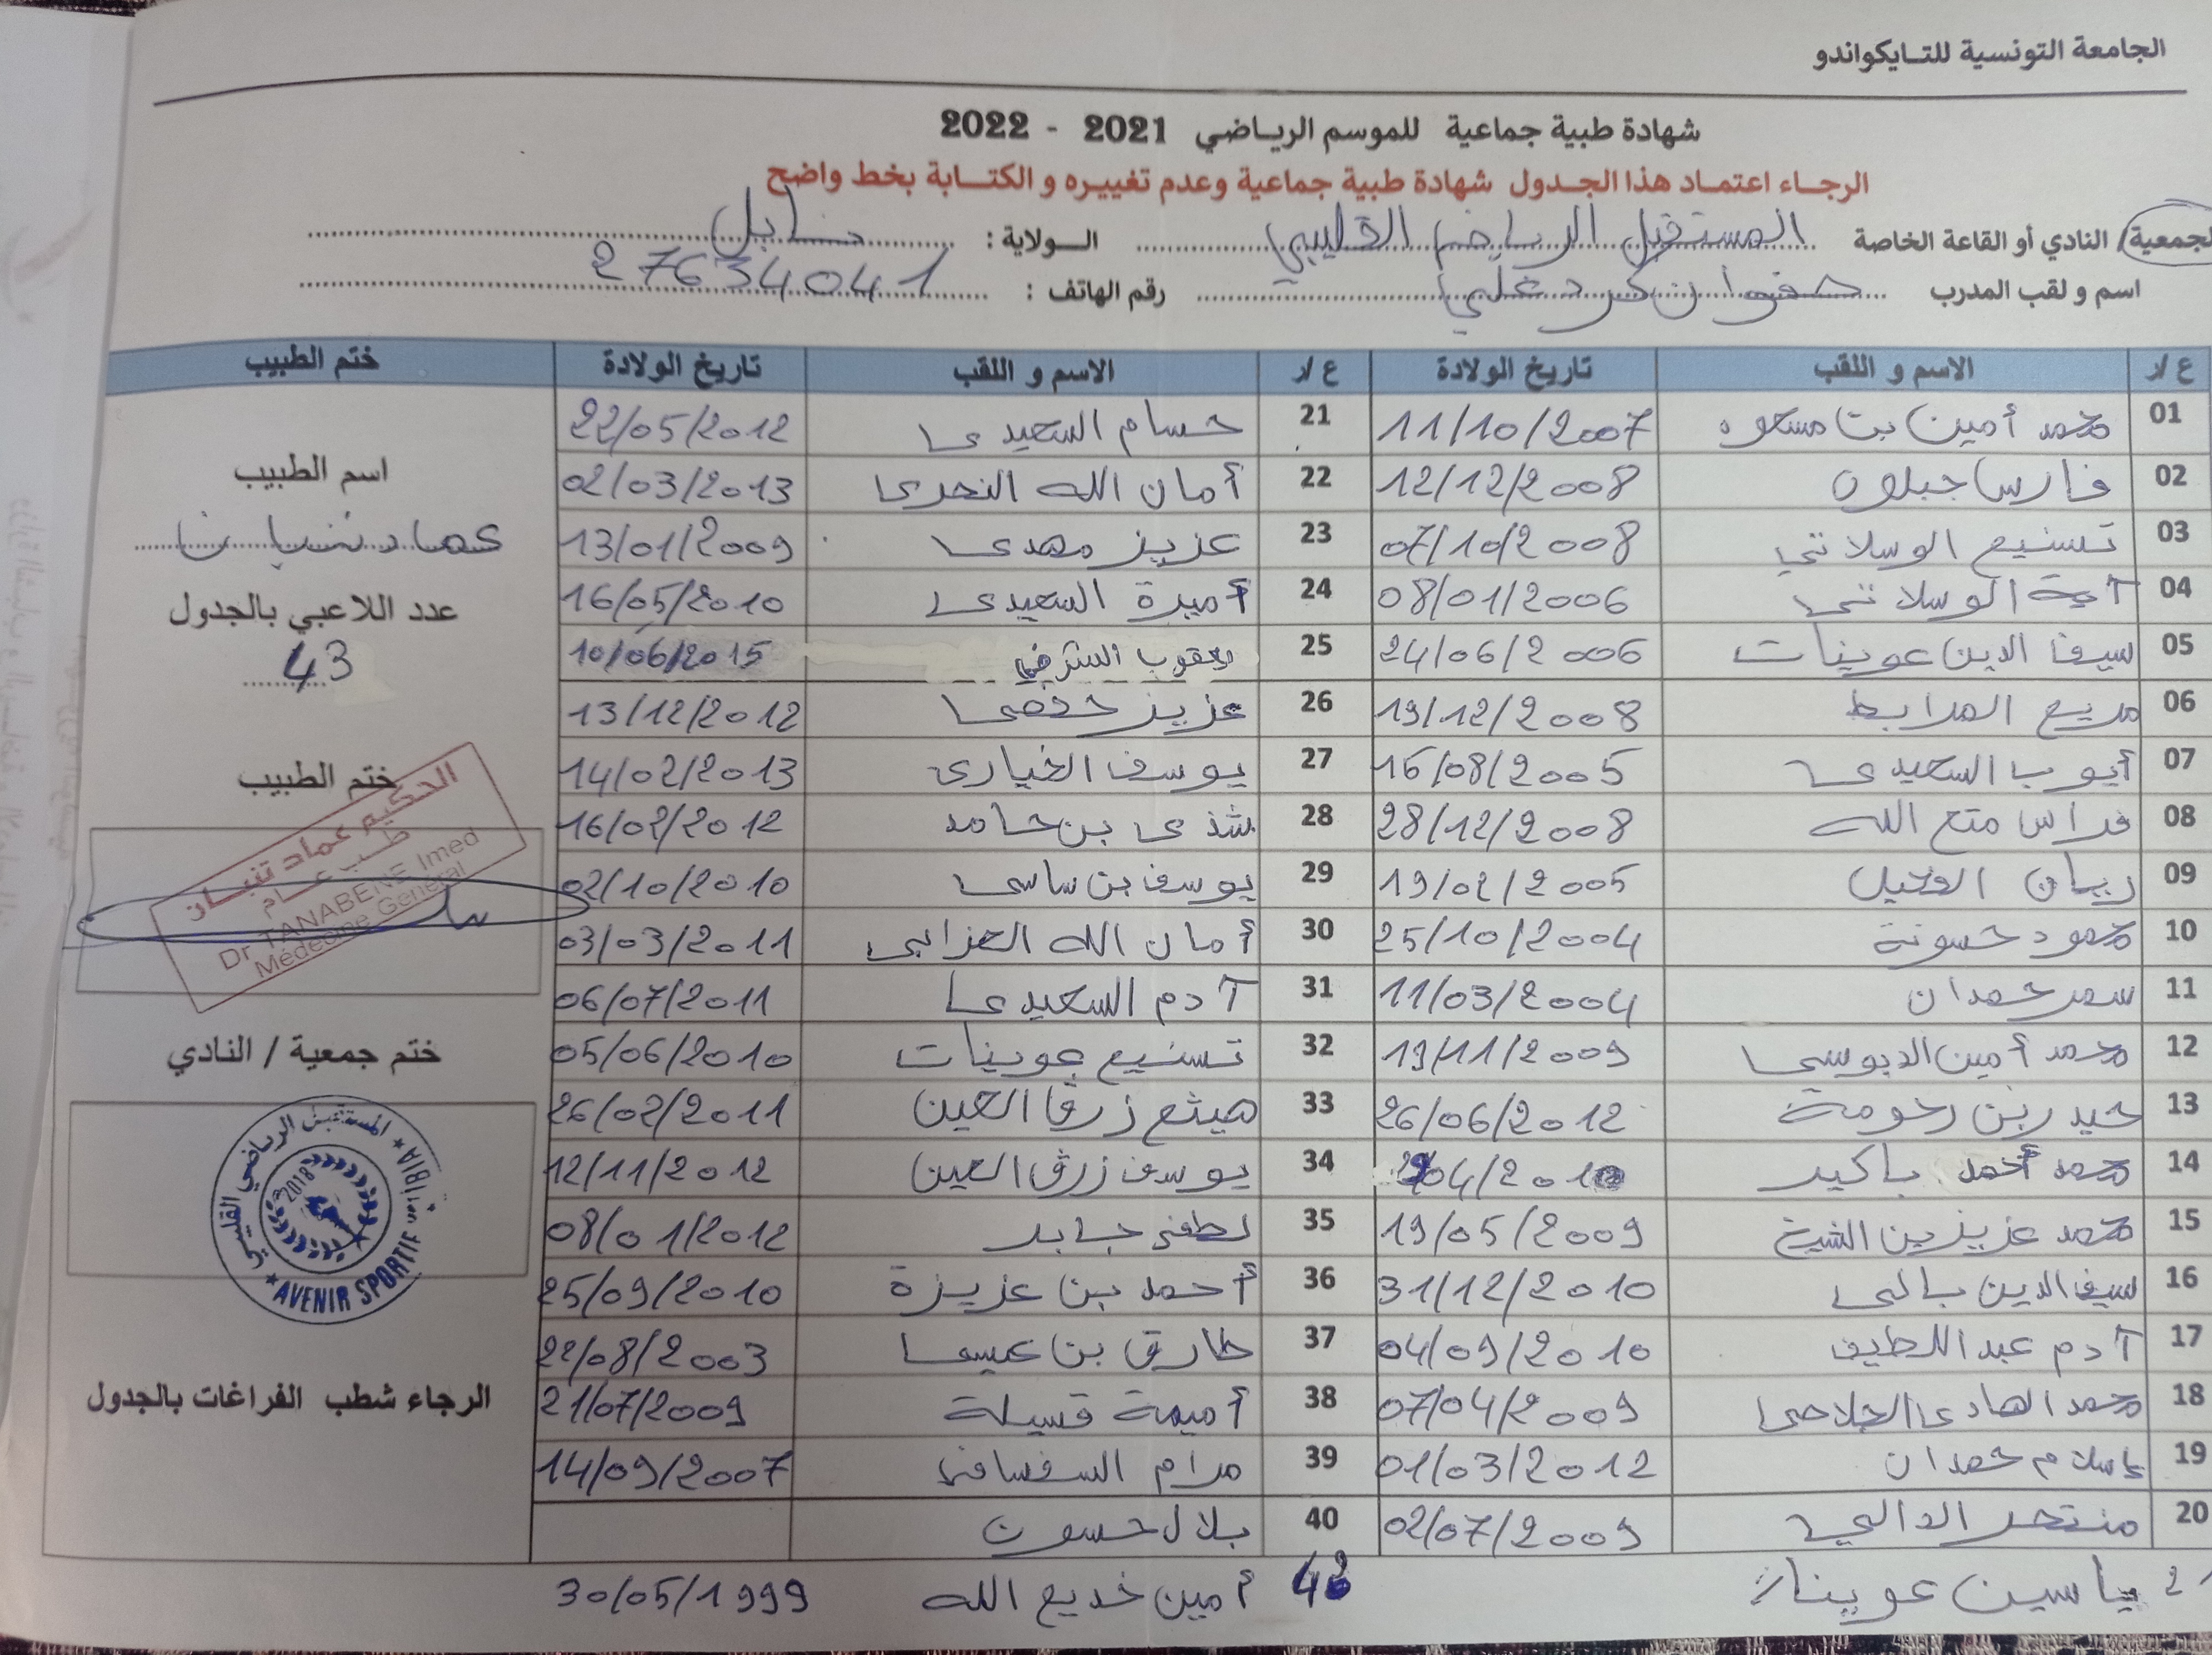 الجامعة التونسية للتايكواندو
شهادة طبية جماعية للموسم الرياضي 2021 - 2022
الرجاء اعتماد هذا الجدول شهادة طبية جماعية وعدم تغييره و الكتابة بخط واضح
الجمعية/ النادي أو القاعة الخاصة المستقبل الرياضي القليبي الولاية : نابل
اسم و لقب المدرب صفوان كردغلي رقم الهاتف : 27634041
ع/ر الاسم و اللقب تاريخ الولادة ع/ر الاسم و اللقب تاريخ الولادة ختم الطبيب
01 محمد أمين بن مسعود 11/10/2007 21 حسام السعيدي 22/05/2012
02 فارس جبلون 12/12/2008 22 أمان الله 02/03/2013
03 تسنيم الوسلاتي 07/10/2008 23 عزيز مهدي 13/01/2009
04 آية الوسلاتي 08/01/2006 24 أميرة السعيدي 16/05/2010
05 سيف الدين عوينات 24/06/2006 25 يعقوب الشرفي 10/06/2015
06 مريم المرابط 19/12/2008 26 عزيز حفصي 13/12/2012
07 أيوب السعيدي 16/08/2005 27 يوسف الخياري 14/02/2013
08 فراس متع الله 28/12/2008 28 شذى بن حامد 16/02/2012
09 ريان 19/02/2005 29 يوسف بن ساسي 02/10/2010
10 محمود حسونة 25/10/2004 30 أمان الله العزابي 03/03/2011
11 سمر حمدان 11/03/2004 31 آدم السعيدي 06/07/2011
12 محمد أمين الدبوسي 19/11/2009 32 تسنيم عوينات 05/06/2010
13 حيدر بن رحومة 26/06/2012 33 هيثم زرق العين 26/02/2011
14 محمد أحمد باكير 34 يوسف زرق العين 12/11/2012
15 محمد عزيز بن الشيخ 19/05/2009 35 لطفي جابر 08/01/2012
16 سيف الدين بالي 31/12/2010 36 أحمد بن عزيزة 25/09/2010
17 آدم عبد اللطيف 04/09/2010 37 طارق بن عيسى 22/08/2003
18 محمد الهادي الجلاصي 07/04/2009 38 أميمة قسيلة 21/07/2009
19 إسلام حمدان 01/03/2012 39 مرام السفسافي 14/09/2007
20 منتصر الدالي 02/07/2009 40 بلال حسون
ياسين عوينات أمين خديع الله 30/05/1999
اسم الطبيب
عماد تنبان
عدد اللاعبي بالجدول
43
ختم الطبيب
الحكيم عماد تنبان
طب عام
Dr TANABENE Imed
Médecine Général
ختم جمعية / النادي
المستقبل الرياضي القليبي
2018
AVENIR SPORTIF
الرجاء شطب الفراغات بالجدول